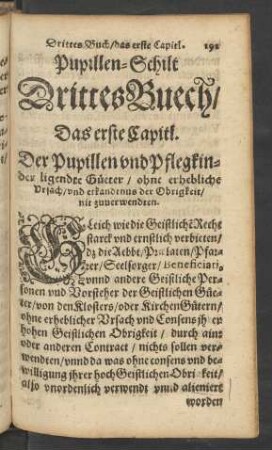 Drittes Buch/das erste Capitl. 191
Pupillen-Schilt
Drittes Buech/
Das erste Capitl.
Der Pupillen vnd Pflegkin-
der ligendte Güeter / ohne erhebliche
Vrsach/vnd erkandtnus der Obrigkeit/
nit zuuerwendten.
GLeich wie die Geistliche Recht
starck vnd ernstlich verbieten/
dz die Aebbt/Prælaten/Pfar-
rer/Seelsorger/Beneficiati,
vnnd andere Geistliche Per-
sonen vnd Vorsteher der Geistlichen Güe-
ter/von den Klosters/oder Kirchen Gütern/
ohne erheblicher Vrsach vnd Consens jhrer
hohen Geistlichen Obrigkeit / durch ain
oder anderen Contract / nichts sollen ver-
wendten/vnnd da was ohne consens vnd be-
willigung jhrer hoch Geistlichen Obrigkeit/
also vnordenlich verwendt vnnd alieniert
worden